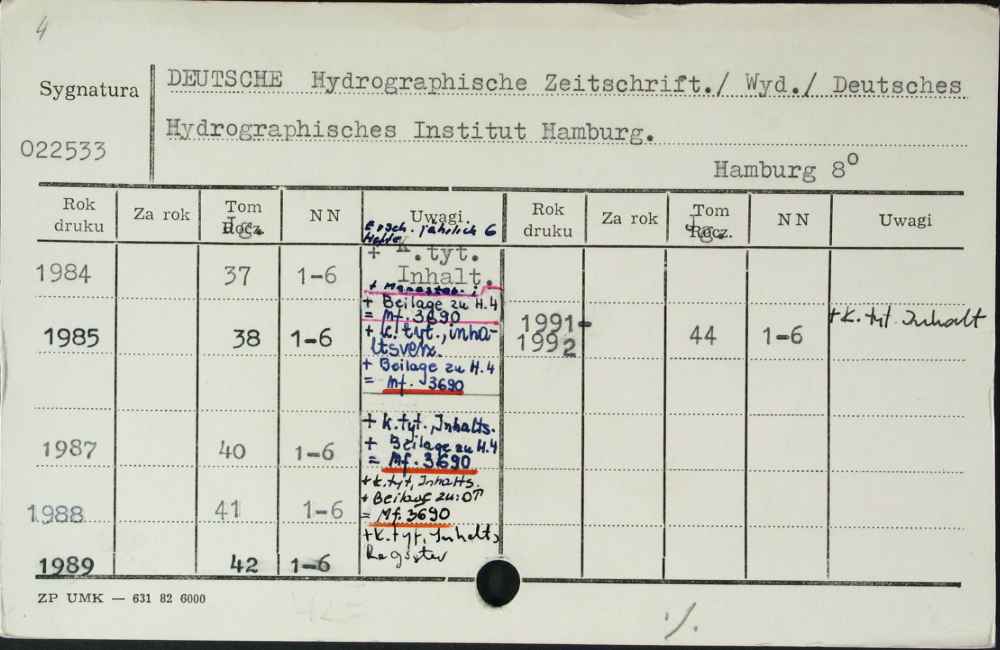 4
Sygnatura
022533
DEUTSCHE Hydrographische Zeitschrift./ Wyd./ Deutsches
Hydrographisches Institut Hamburg.
Hamburg 8°
Rok druku Za rok Tom Rocz. Jg. NN Uwagi
Ersch. jährlich 6
Hefte
Rok druku Za rok Tom Rocz. Jg. NN Uwagi
1984 37 1-6 + K.tyt.
Inhalt.
+ Beilage zu H.4
= Mf. 3690
1985 38 1-6 + k.tyt., inha-
ltsverz.
+ Beilage zu H.4
= Mf. 3690
1987 40 1-6 + k.tyt., Inhalts.
+ Beilage zu H.4
= Mf. 3690
1988 41 1-6 + k.tyt, Inhalts.
+ Beilage zu:
= Mf. 3690
1989 42 1-6 + k.tyt, Inhalts
Register
1991-
1992 44 1-6 + K.tyt. Inhalt
ZP UMK — 631 82 6000
./.